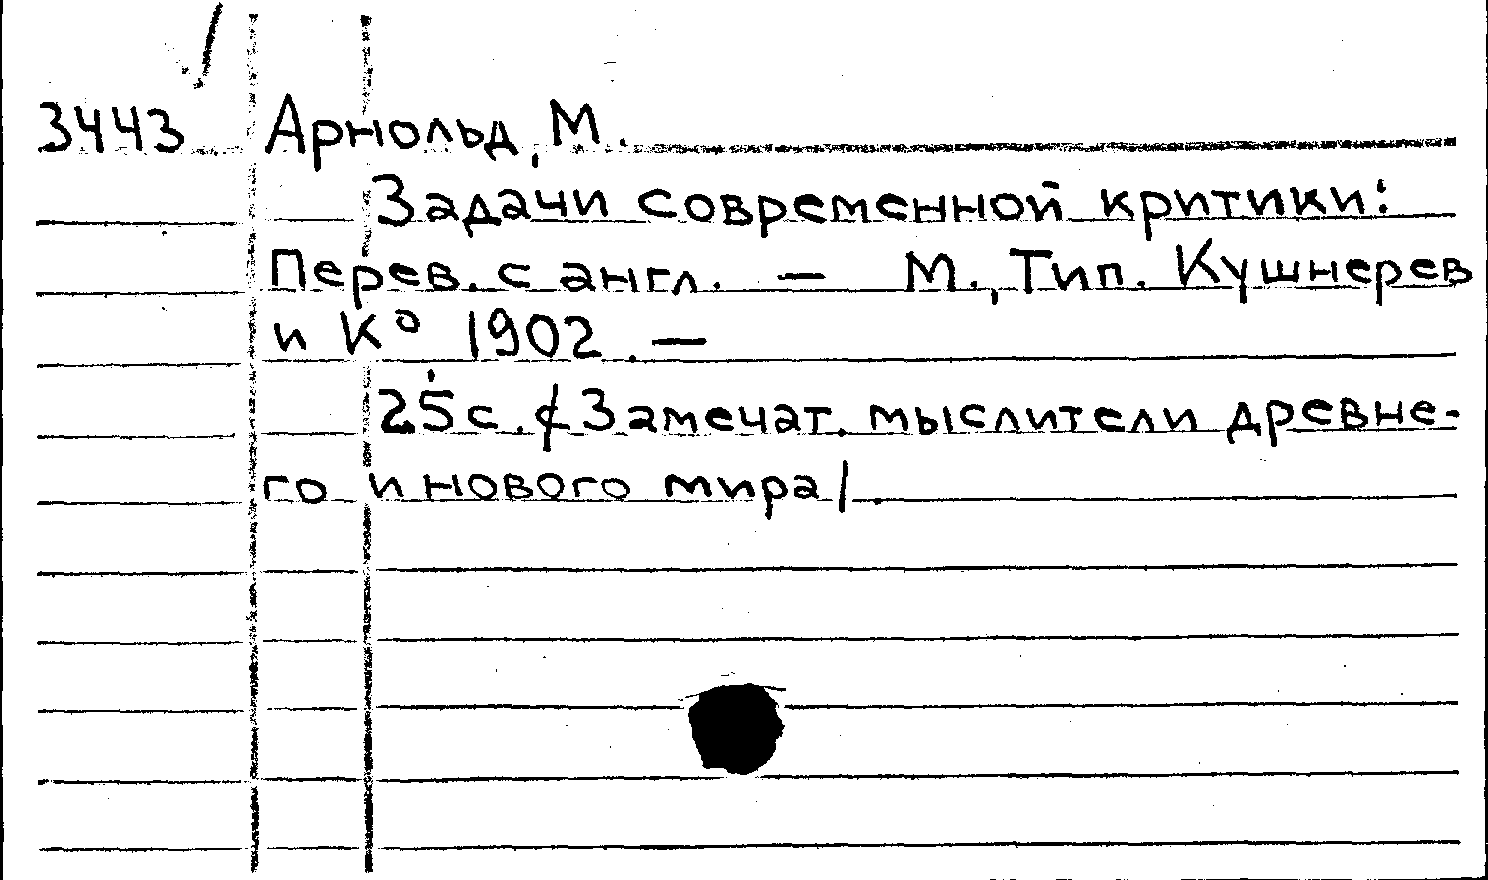 3443 Арнольд, М.
Задачи современной критики:
Перев. с англ. — М., Тип. Кушнерев
и К° 1902. —
25 с. /Замечат. мыслители древне-
го и нового мира/.